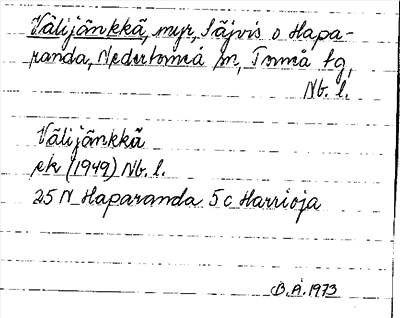 Välijänkkä, myr, Säjvis o Hapa-
randa, Nedertorneå sn, Torneå tg,
Nb. l.
Välijänkkä
ek (1949) Nb. l.
25 N Haparanda 5 c Harrioja
B.Å. 1973